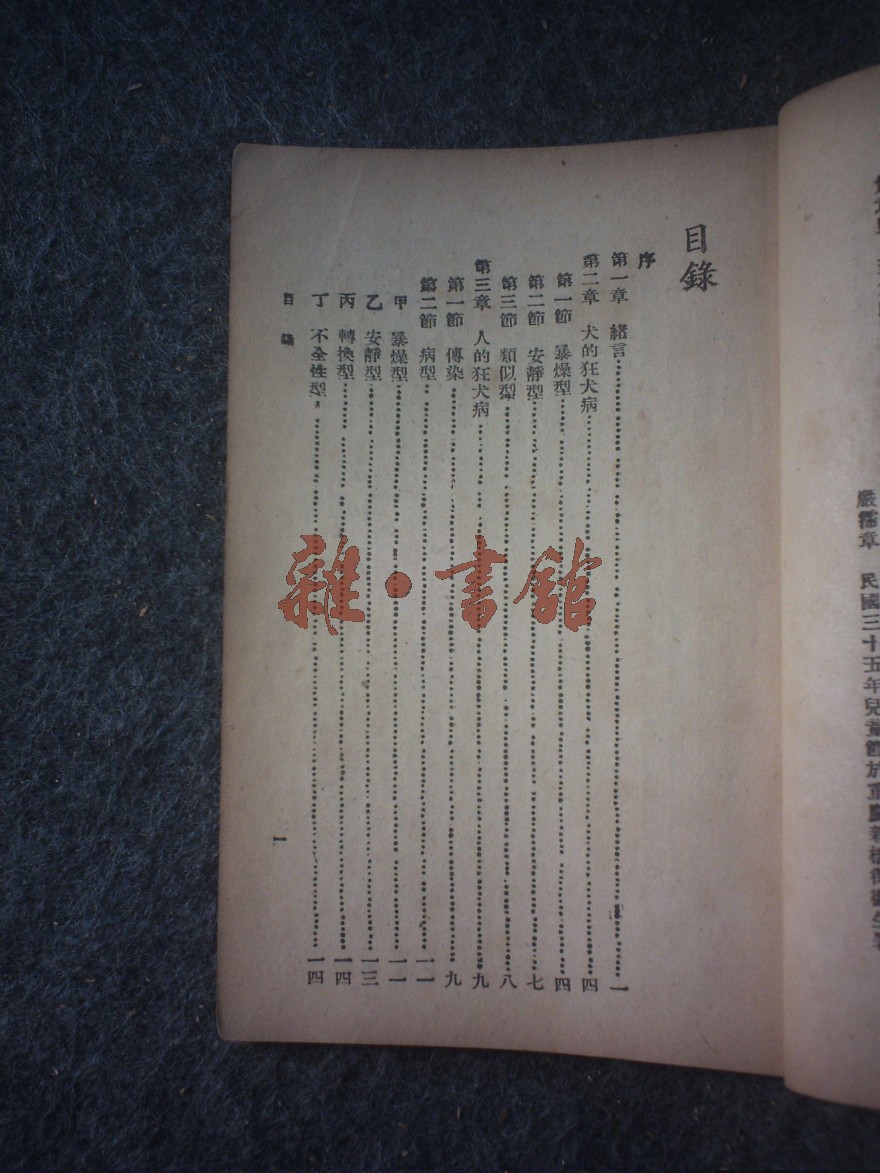 嚴霈章　民國三十五年兒童節於重慶新橋衛生署
目錄
序
第一章　緒言……一
第二章　犬的狂犬病……四
第一節　暴燥型……四
第二節　安靜型……七
第三節　類似型……八
第三章　人的狂犬病……九
第一節　傳染……九
第二節　病型……一一
甲　暴燥型……一一
乙　安靜型……一三
丙　轉換型……一四
丁　不全性型……一四
目錄
一
雜·書館